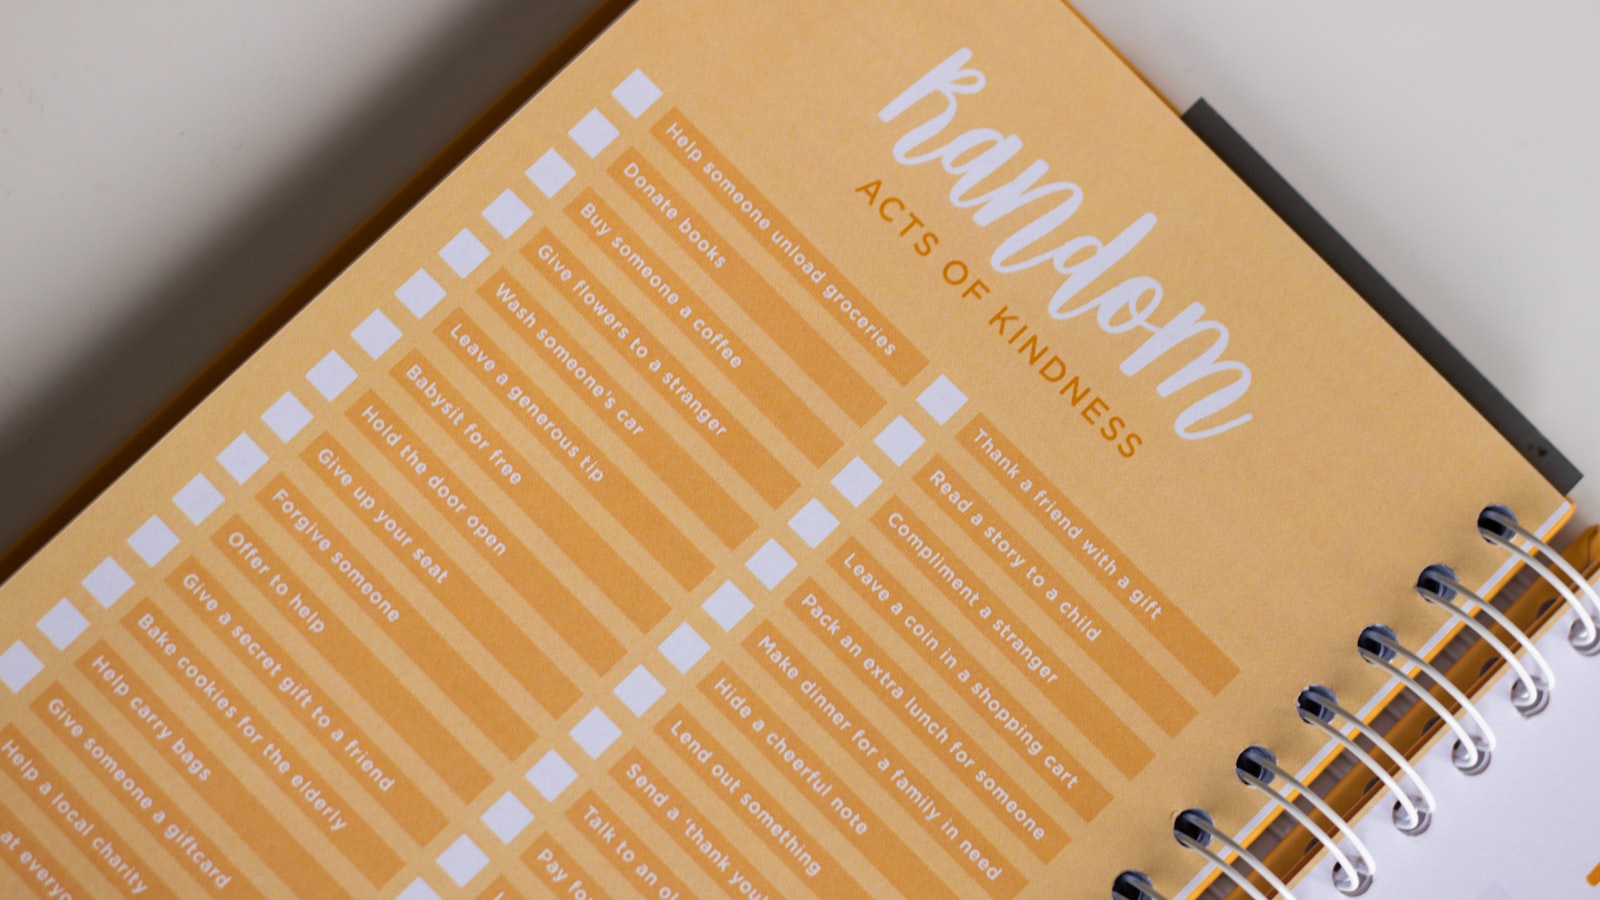 Random
ACTS OF KINDNESS
Help someone unload groceries
Donate books
Buy someone a coffee
Give flowers to a stranger
Wash someone's car
Leave a generous tip
Babysit for free
Hold the door open
Give up your seat
Forgive someone
Offer to help
Give a secret gift to a friend
Bake cookies for the elderly
Help carry bags
Give someone a giftcard
Help a local charity
at everyo
Thank a friend with a gift
Read a story to a child
Compliment a stranger
Leave a coin in a shopping cart
Pack an extra lunch for someone
Make dinner for a family in need
Hide a cheerful note
Lend out something
Send a 'thank you'
Talk to an ol
Pay fo